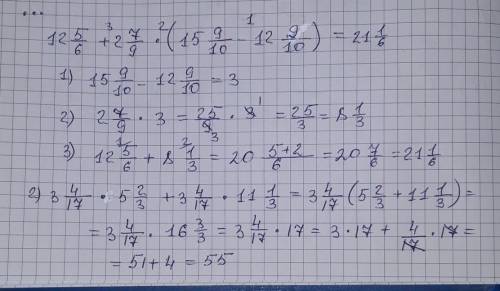 ...
12 5/6 +³ 2 7/9 ·² (15 9/10 -¹ 12 9/10) = 21 1/6
1) 15 9/10 - 12 9/10 = 3
2) 2 7/9 · 3 = 25/9 3 · 3 1 = 25/3 = 8 1/3
3) 12 5/6 1 + 8 1/3 2 = 20 5+2/6 = 20 7/6 = 21 1/6
2) 3 4/17 · 5 2/3 + 3 4/17 · 11 1/3 = 3 4/17 (5 2/3 + 11 1/3) =
= 3 4/17 · 16 3/3 = 3 4/17 · 17 = 3 · 17 + 4/17 · 17 =
= 51 + 4 = 55